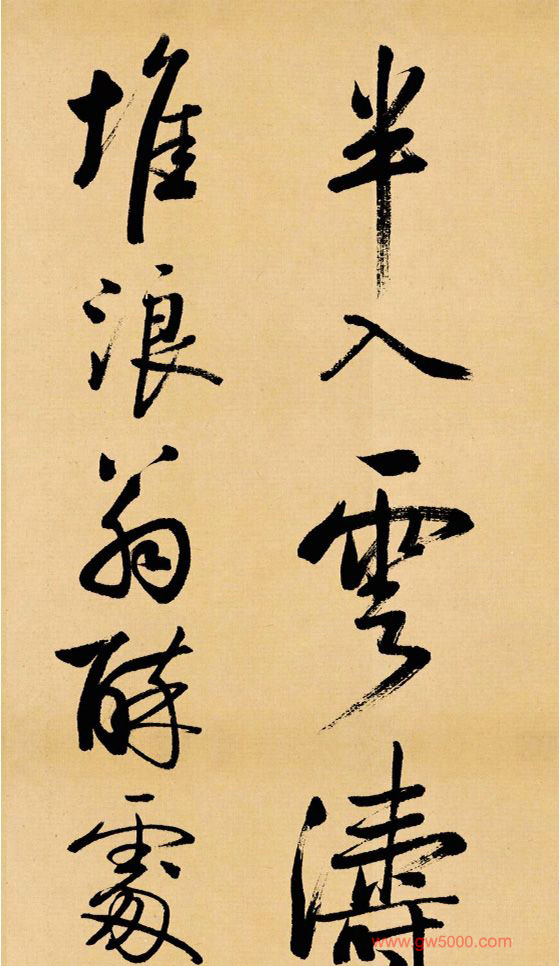 半入雲濤
堆浪翁醉處
www.gw5000.com